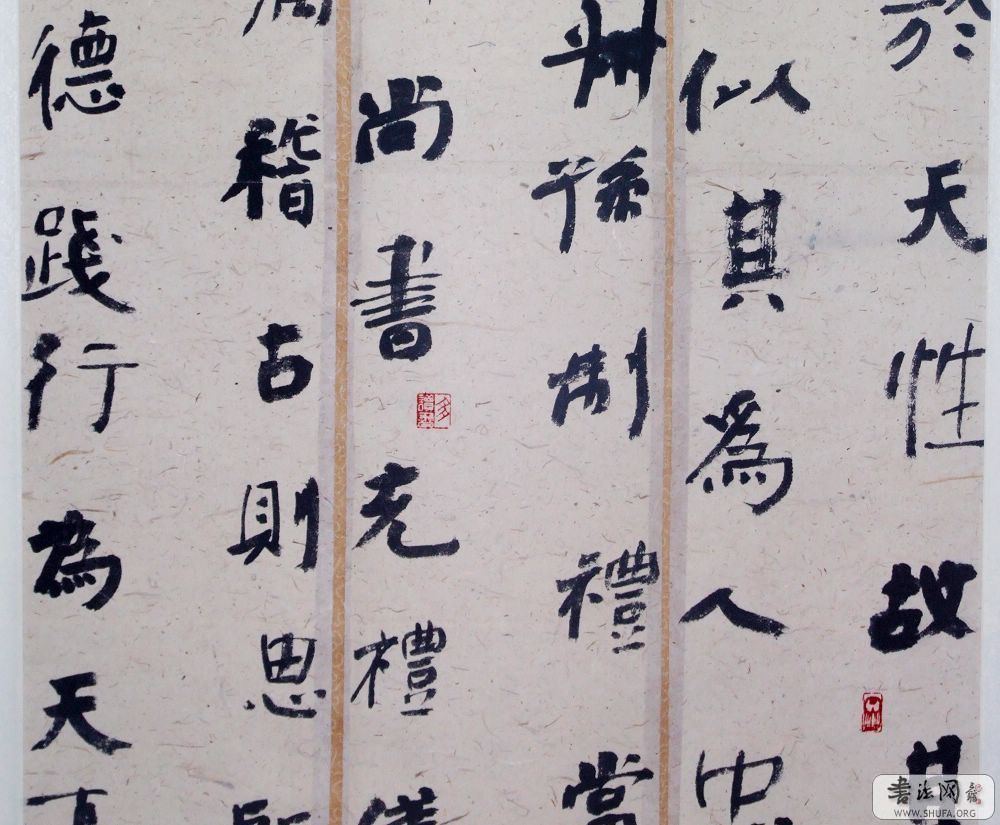 於天性故其
似其為人中
州孫制禮當
尚書充禮儀
周稽古則思
德踐行為天下
書法网
WWW.SHUFA.ORG